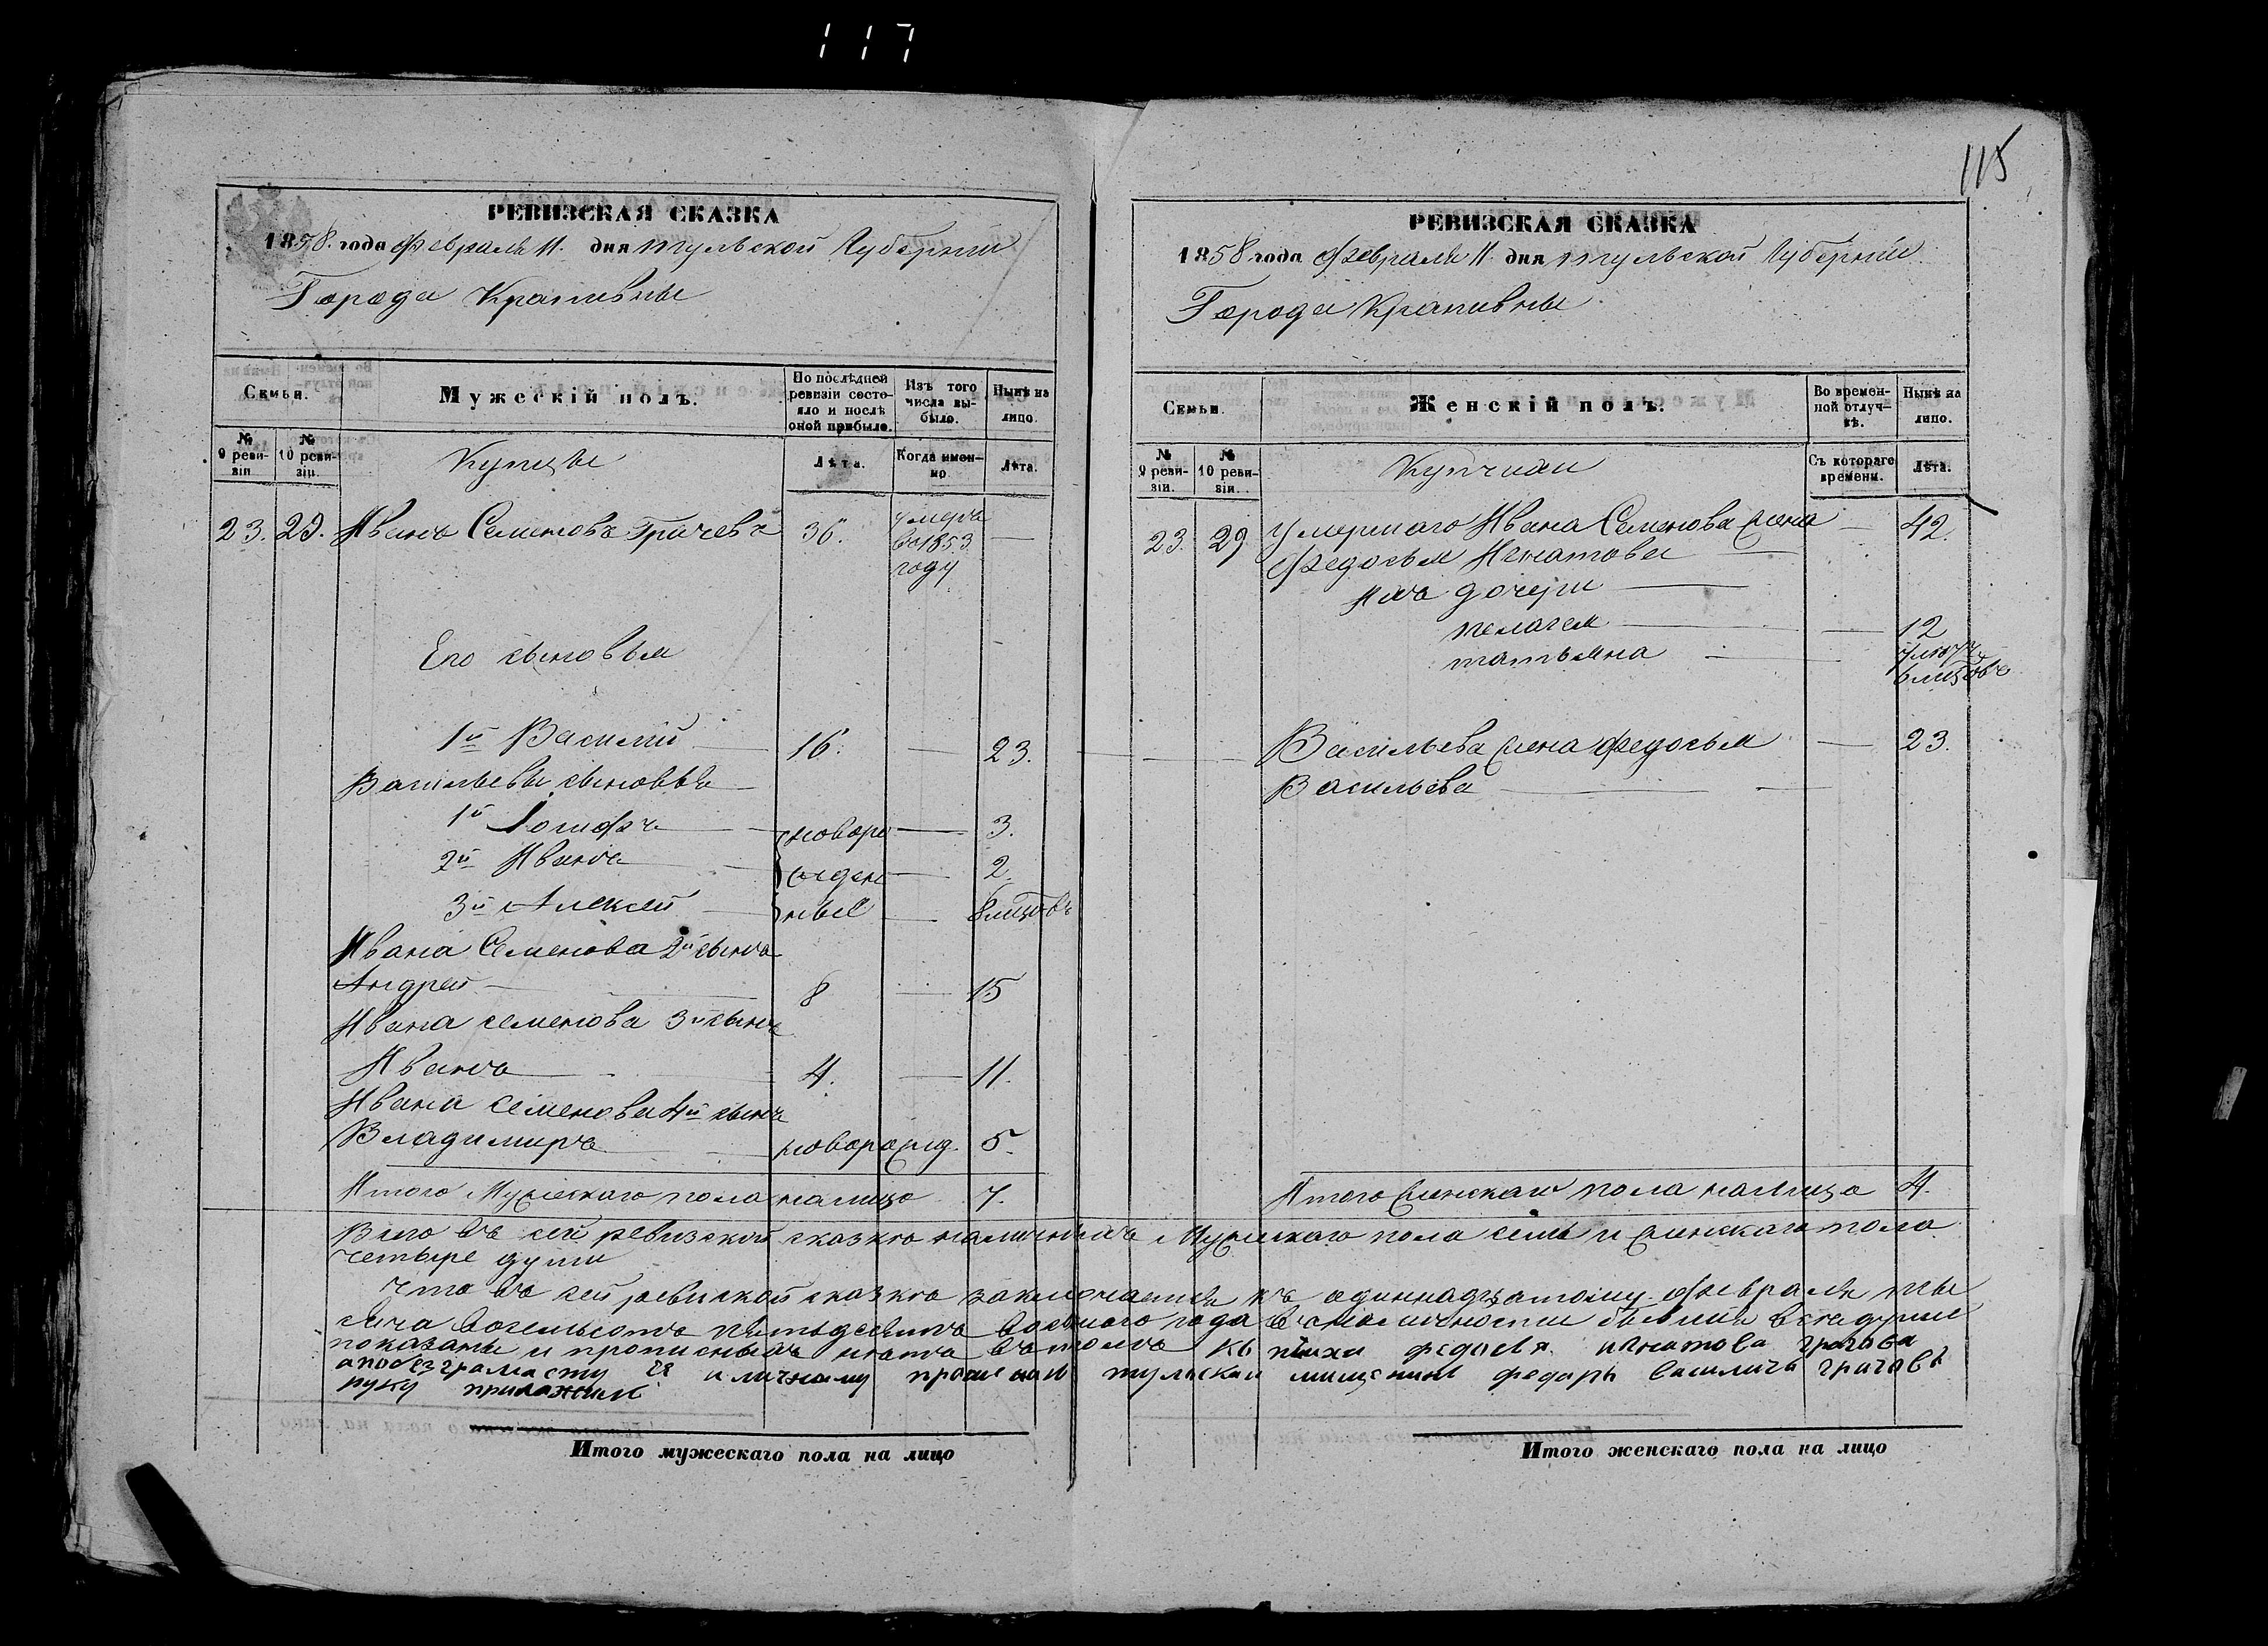 117
115
РЕВИЗСКАЯ СКАЗКА
1858. года Февраля 11. дня тульской Губернии
Города Крапивны
Семьи.
Мужескій полъ.
По послѣдней ревизіи состояло и послѣ оной прибыло.
Изъ того числа выбыло.
Нынѣ на лицо.
№ 9 ревизіи
№ 10 ревизіи.
Купцы
Лѣта.
Когда именно
Лѣта.
23. 29. Иванъ Семеновъ Грачевъ 36. умеръ
въ 1853
году
Его сыновья
1й Василій 16. 23.
Васильевы сыновья
1й Іосифъ новоро 3.
2й Иванъ жден 2.
3й Алексей ные 8 мцовъ
Ивана Семенова 2й сынъ
Андрей 8 15
Ивана семенова 3й сынъ
Иванъ 4. 11.
Ивана семенова 4й сынъ
Владимиръ новорожд. 5.
Итого Мужескаго пола налицо 7.
РЕВИЗСКАЯ СКАЗКА
1858 года Февраля 11. дня тульской Губерніи
Города Крапивны
Семьи.
Женскій полъ.
Во временной отлучкѣ.
Нынѣ на лицо.
№ 9 ревизіи.
№ 10 ревизіи.
Купчихи
Съ котораго времени.
Лѣта.
23. 29 Умершаго Ивана Семенова жена 42.
Федосья Игнатова
Ихъ дочери
пелагея 12
татьяна
Васильева жена Федосья 23.
Васильева
Итого женскаго пола налицо 4.
Всего въ сей ревизской сказке наличныхъ Мужескаго пола семь и женскаго пола
четыре души
Что въ сей ревиской сказке заключается къ одиннадцатому февраля ты
сяча восемьсотъ пятьдесятъ восьмого года наличности бывшия все души
показаны и прописныхъ нетъ въ томъ федосья игнатова грачева
апобезграмасту ея иличному тульской мищенин федаръ василичъ грачовъ
руку приложил
Итого мужескаго пола на лицо
Итого женскаго пола на лицо